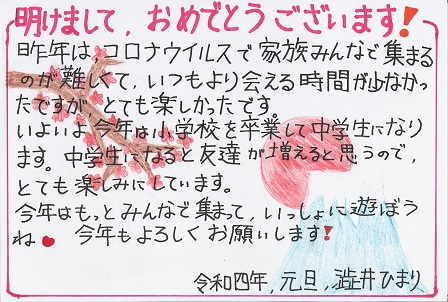 明けまして，おめでとうございます！
昨年は，コロナウイルスで家族みんなで集まる
のが難しくて，いつもより会える時間が少なかっ
たですが，とても楽しかったです。
いよいよ今年は小学校を卒業して中学生になり
ます。中学生になると友達が増えると思うので，
とても楽しみにしています。
今年はもっとみんなで集まって，いっしょに遊ぼう
ね♥ 今年もよろしくお願いします！
令和四年，元旦，澁井ひまり